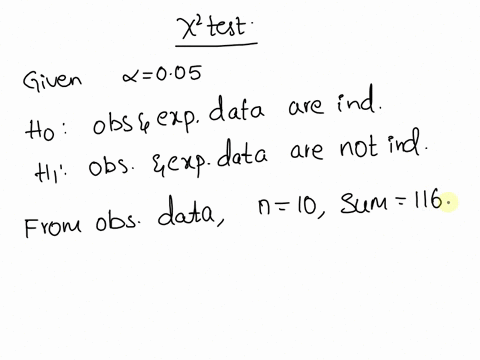 χ² test.
Given α=0.05
H₀: obs & exp. data are ind.
H₁: obs. & exp. data are not ind.
From obs. data, n=10, sum=116.